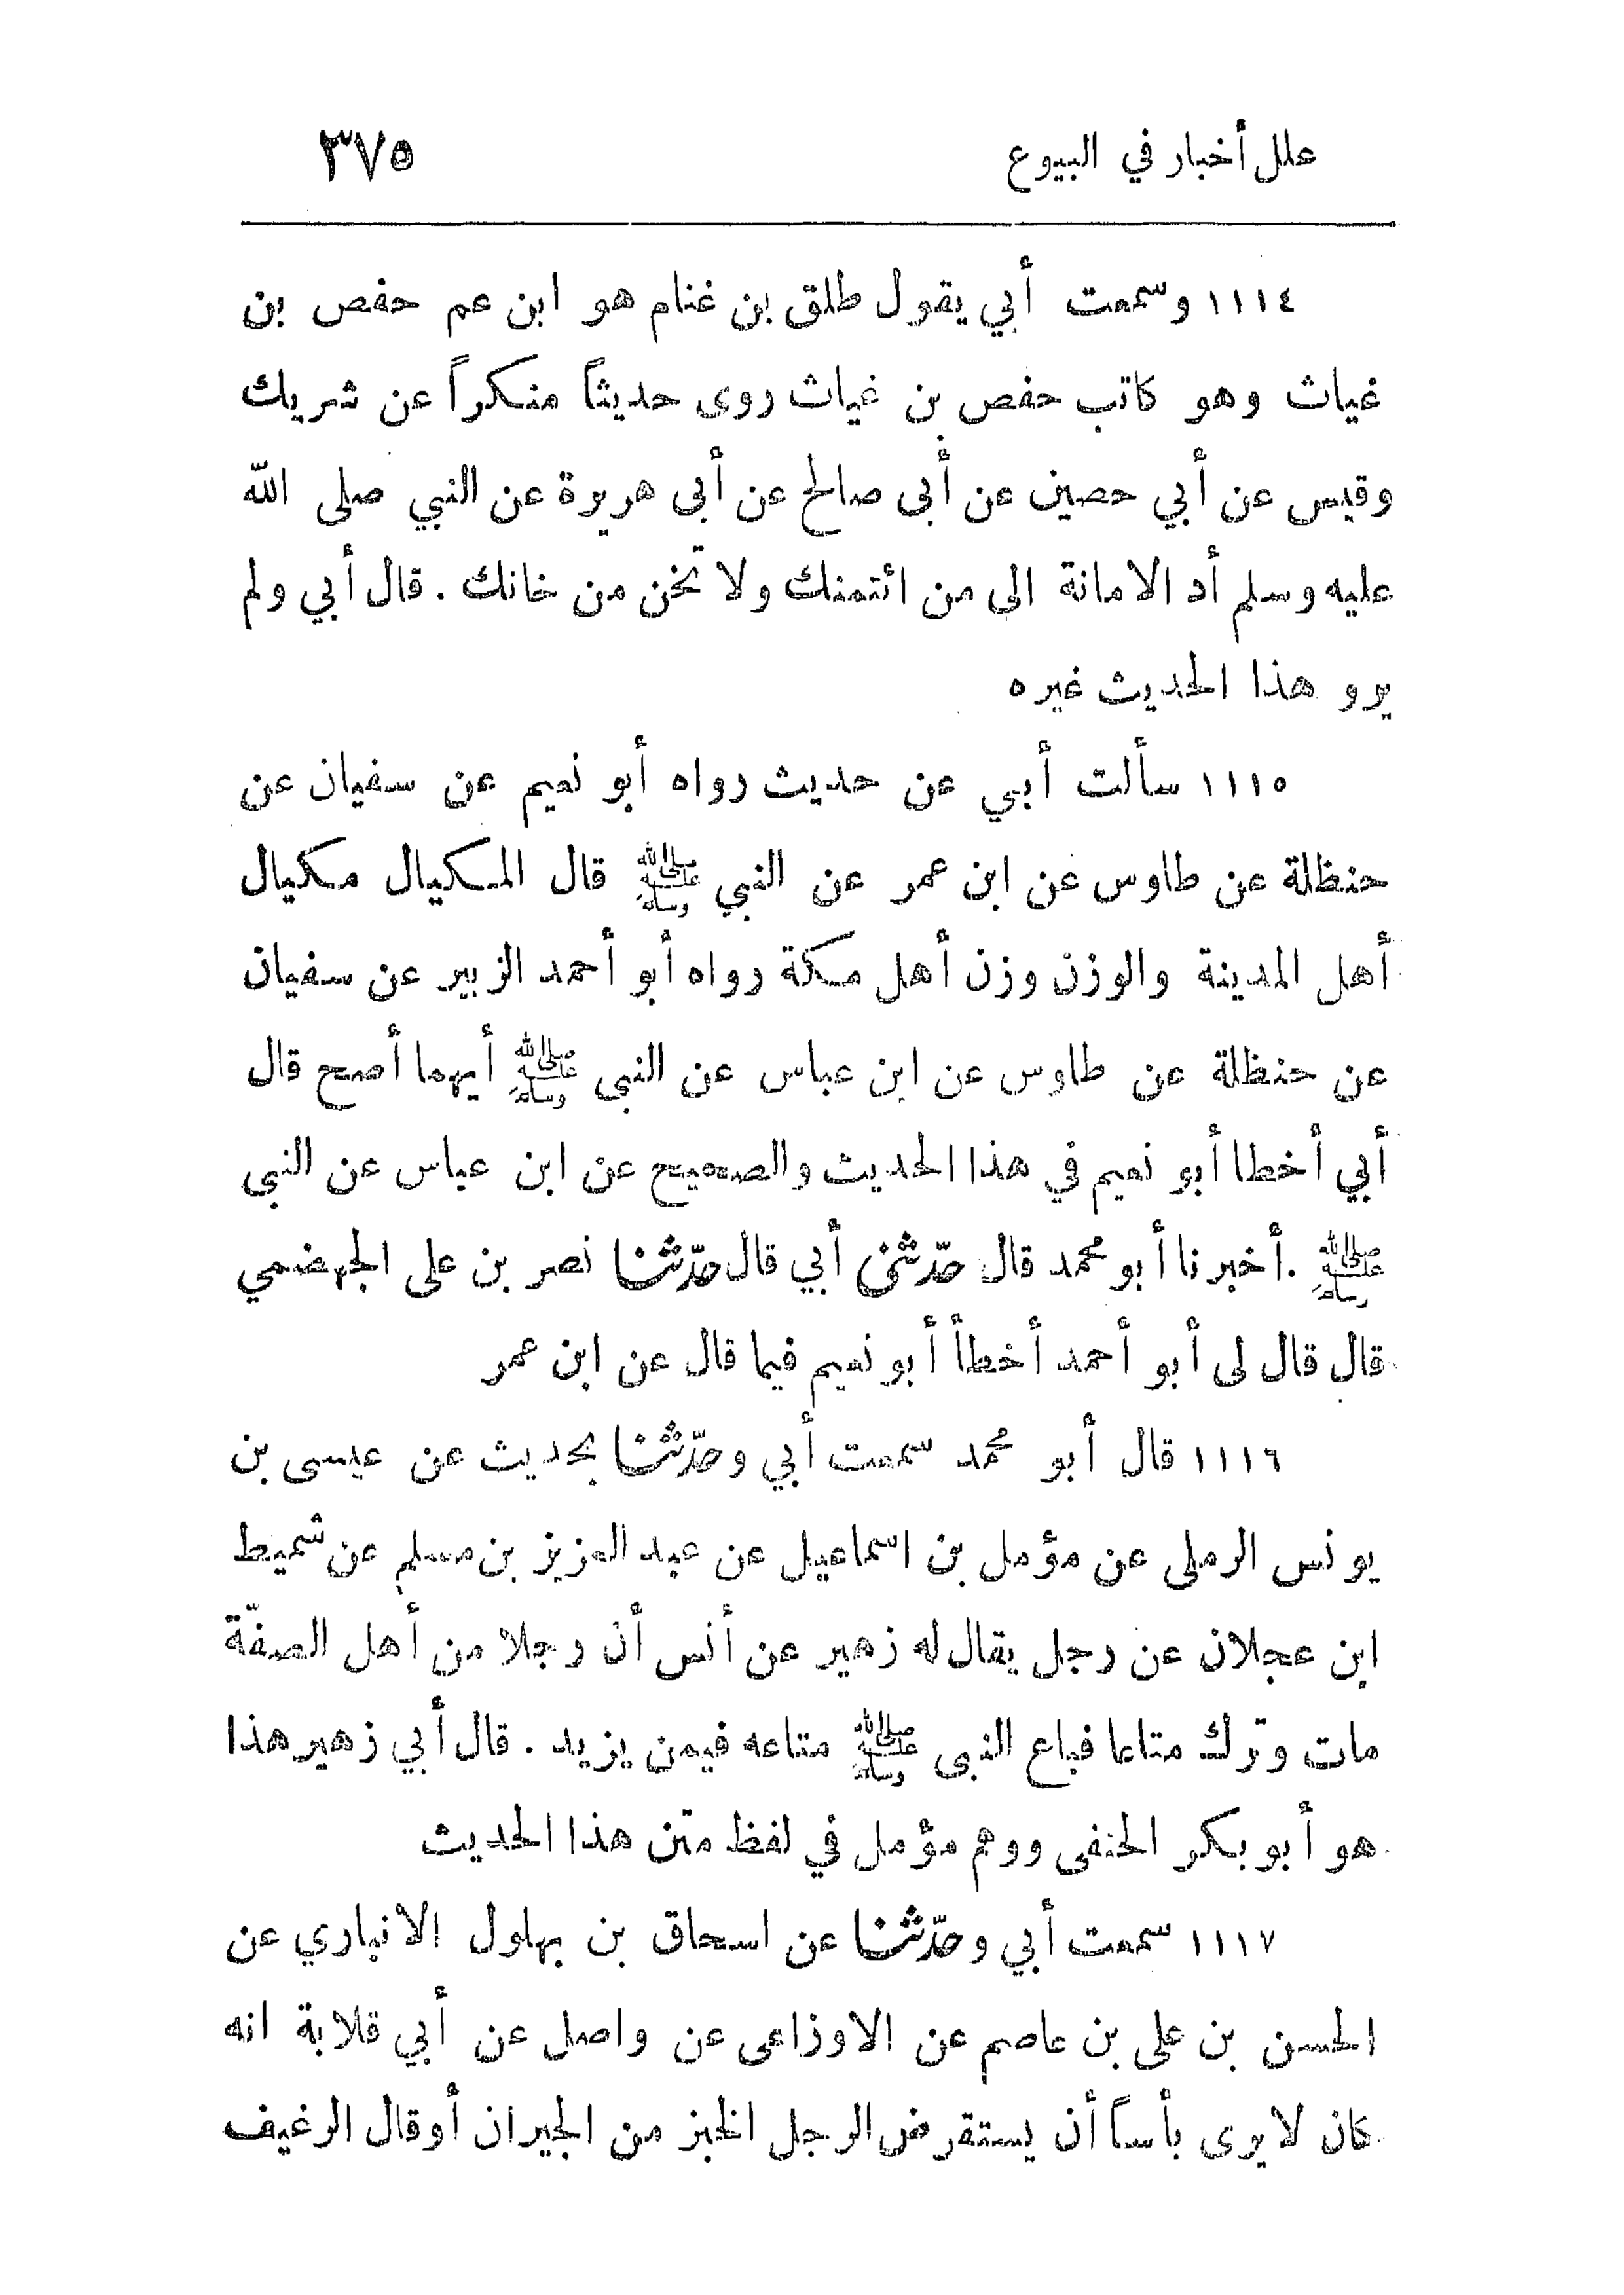 علل أخبار في البيوع ٣٧٥
١١١٤ وسمعت أبي يقول طلق بن غنام هو ابن عم حفص بن
غياث وهو كاتب حفص بن غياث روى حديثاً منكراً عن شريك
وقيس عن أبي حصين عن أبى صالح عن أبى هريرة عن النبي صلى الله
عليه وسلم أد الامانة الى من ائتمنك ولا تخن من خانك . قال أبي ولم
يرو هذا الحديث غيره
١١١٥ سألت أبي عن حديث رواه أبو نعيم عن سفيان عن
حنظلة عن طاوس عن ابن عمر عن النبي ﷺ قال المكيال مكيال
أهل المدينة والوزن وزن أهل مكة رواه أبو أحمد الزبير عن سفيان
عن حنظلة عن طاوس عن ابن عباس عن النبى ﷺ أيهما أصح قال
أبي أخطا أبو نعيم في هذا الحديث والصحيح عن ابن عباس عن النبى
ﷺ . أخبرنا أبو محمد قال حدّثنى أبي قال حدّثنا نصر بن على الجهضمي
قال قال لى أبو أحمد أخطأ أبو نعيم فيما قال عن ابن عمر
١١١٦ قال أبو محمد سمعت أبي وحدّثنا بحديث عن عيسى بن
يونس الرملى عن مؤمل بن اسماعيل عن عبد العزيز بن مسلم عن شميط
ابن عجلان عن رجل يقال له زهير عن أنس أن رجلا من أهل الصفّة
مات وترك متاعا فباع النبى ﷺ متاعه فيمن يزيد . قال أبي زهير هذا
هو أبو بكر الحنفى ووهم مؤمل في لفظ متن هذا الحديث
١١١٧ سمعت أبي وحدّثنا عن اسحاق بن بهلول الانباري عن
الحسن بن على بن عاصم عن الاوزاعى عن واصل عن أبي قلابة انه
كان لا يرى بأساً أن يستقرض الرجل الخبز من الجيران أو قال الرغيف